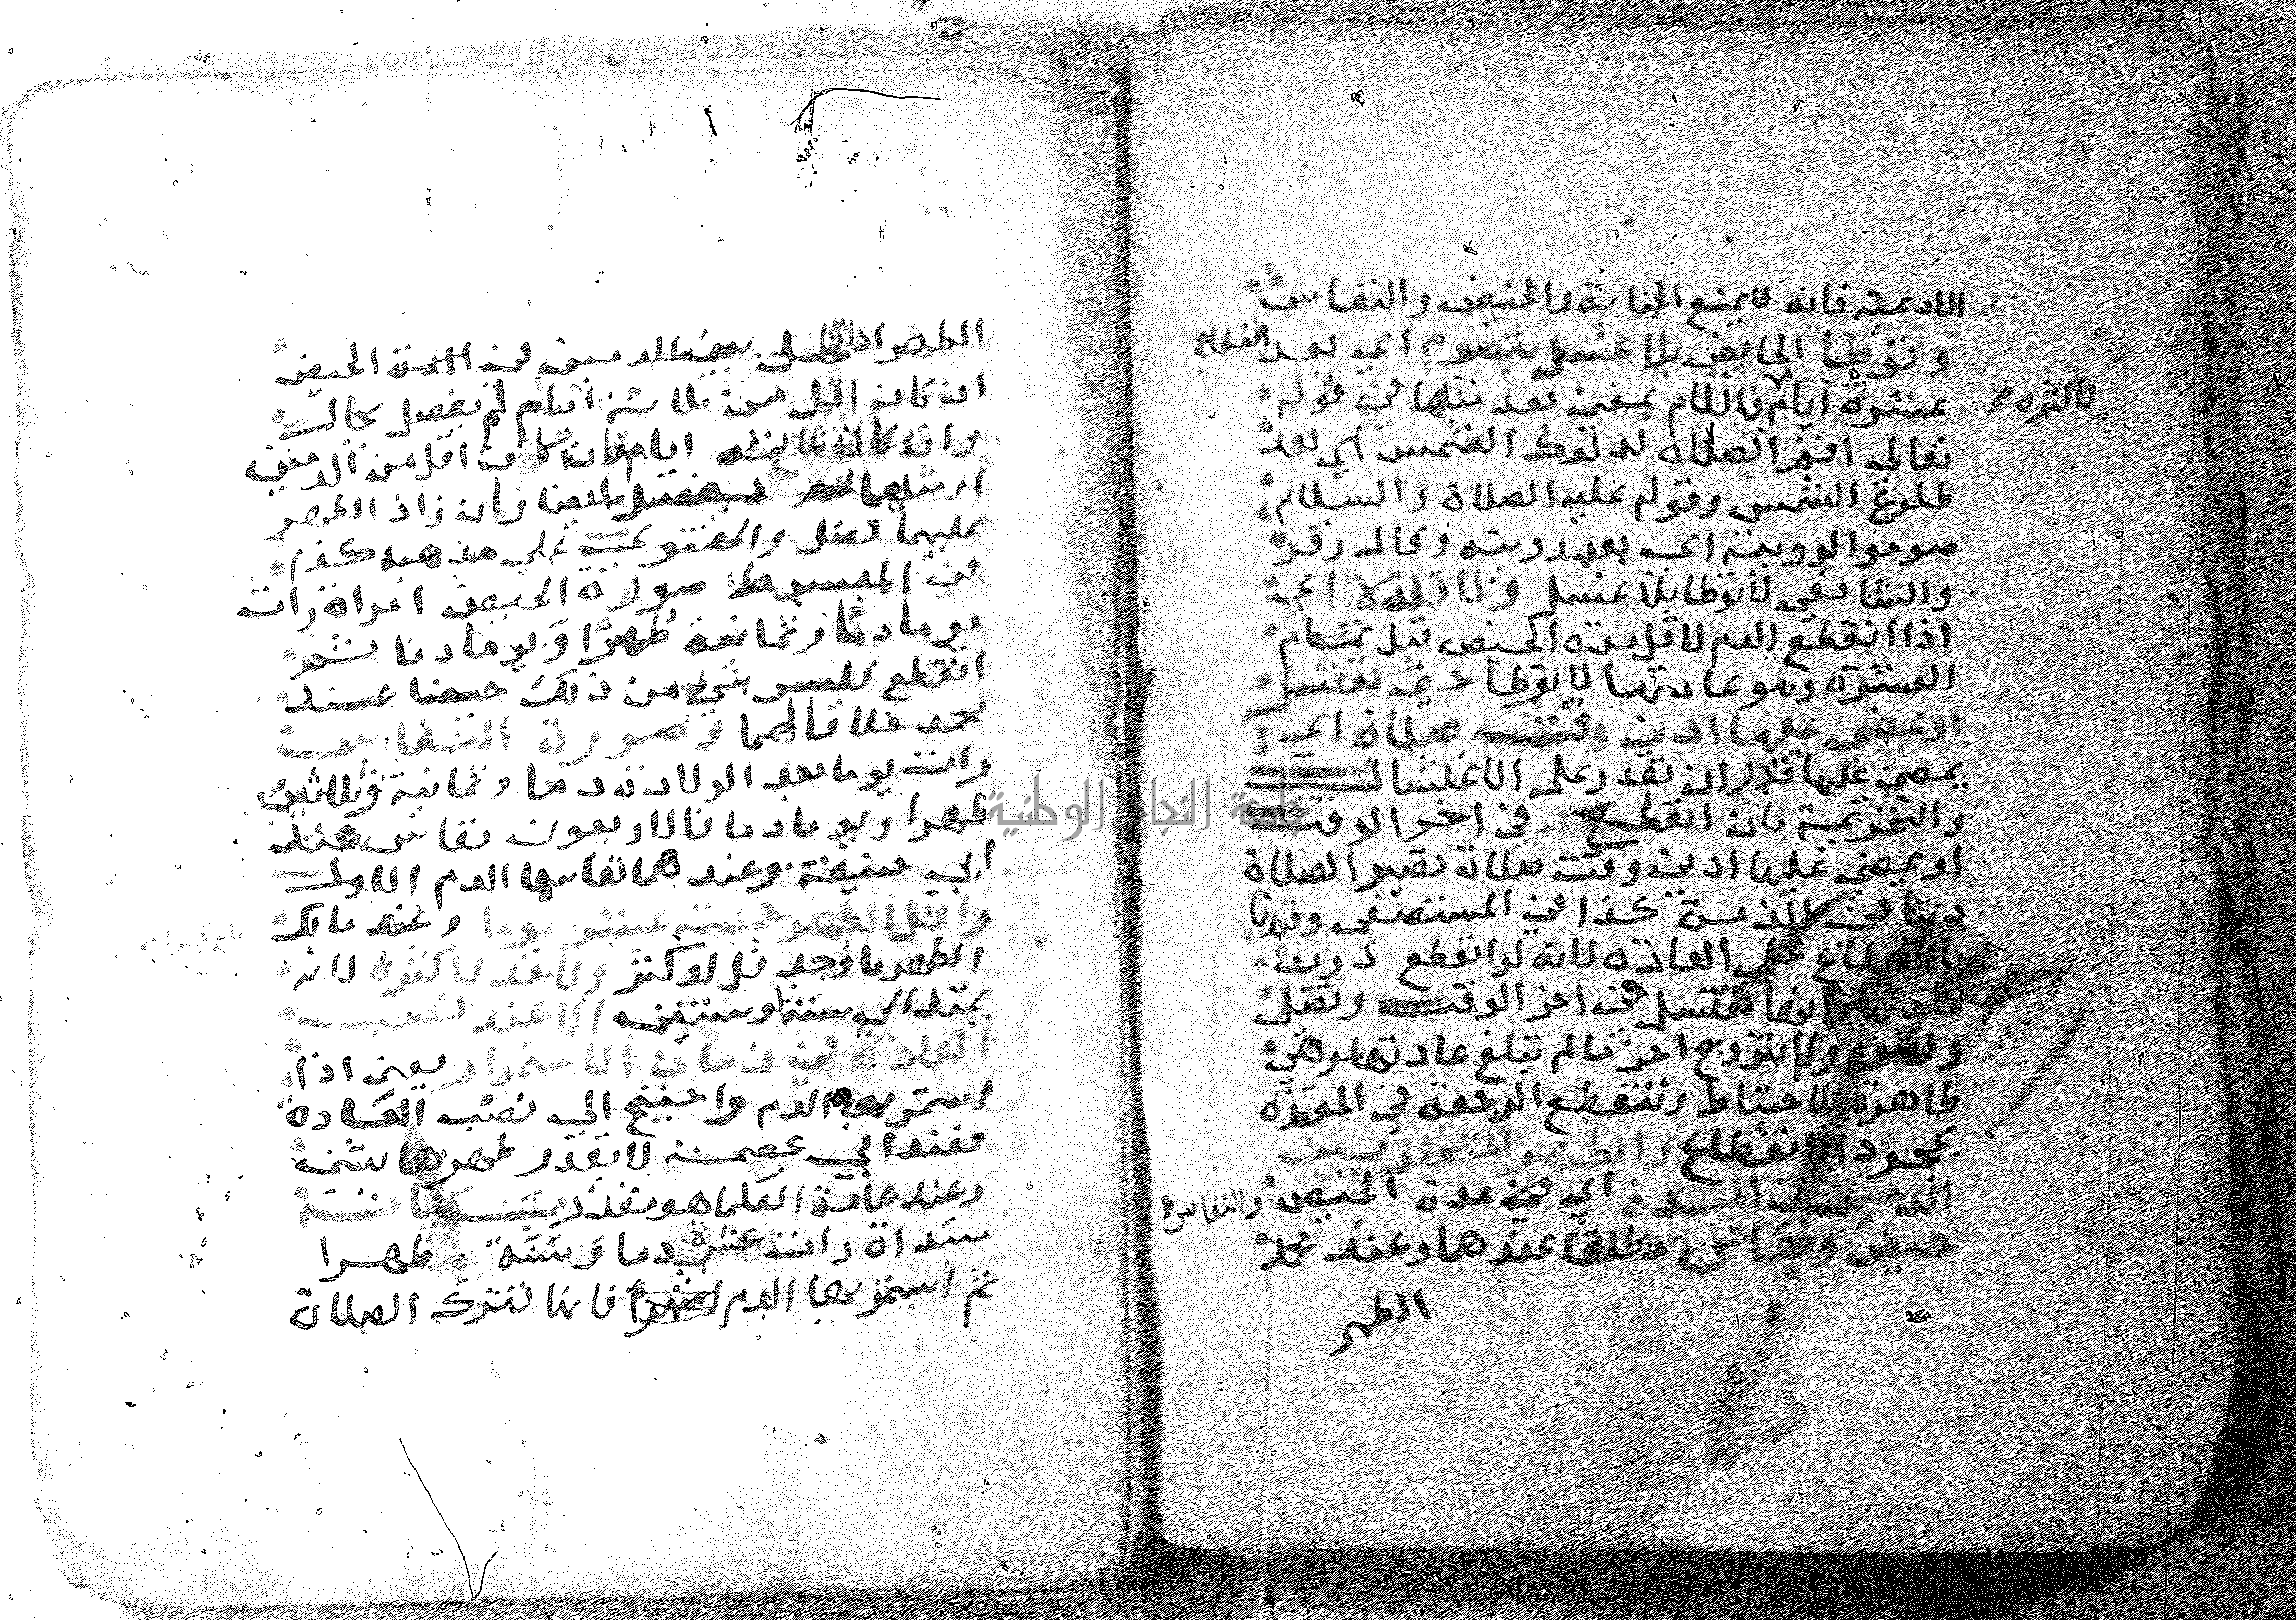 الادمية فانه لا يمنع الجنابة والحيض والنفاس
وتوطا الحايض بلا غسل بتصرم اي بعد انقطاع
عشرة ايام فاللام بمعنى بعد مثلها في قوله
لاكثره
تعالى اقم الصلاه لدلوك الشمس اي بعد
طلوع الشمس وقوله عليه الصلاة والسلام
صوموا لرويته اي بعد رويته وقال زفر
والشافعي لا توطا بلا غسل ولاقله لا اي
اذا انقطع الدم لاقل مدة الحيض قبل تمام
العشرة وهو عادتها لا توطا حتى تغتسل
او يمضي عليها ادنى وقت صلاة اي
يمضي عليها قدر ان تقدر على الاغتسال
والتحريمة بان انقطع في اخر الوقت
او يمضي عليها ادنى وقت صلاة تصير الصلاة
دينا في الذمة كذا في المستصفى وقدنا
بالانقطاع على العادة لانه لو انقطع دون
عادتها فانها تغتسل في اخر الوقت وتصلي
وتصوم ولا تتزوج اخر ما لم تبلغ عادتها وهي
طاهرة للاحتياط وتنقطع الرجعة في المعتدة
بمجرد الانقطاع والطهر المتخلل بين
الدمين في المدة اي في مدة الحيض والنفاس
حيض ونفاس مطلقا عندهما وعند محمد
الطهر
الطهر اذا تخلل بين الدمين في المدة الحيض
ان كان اقل من ثلاثة ايام لم يفصل بحال
وان كان ثلاثه ايام فان كان اقل من الدمين
او مثلهما لم يفصل ايضا وان زاد الطهر
عليهما فصل والفتوى على مذهبه كذا
في المبسوط صورة الحيض امراة رات
يوما دما وثمانية طهرا ويوما دما ثم
انقطع فليس شيء من ذلك حيضا عند
محمد خلافا لهما وصورة النفاس
رات يوما بعد الولادة دما وثمانية وثلاثين
طهرا ويوما دما فالاربعون نفاس عند
ابي حنيفة وعندهما نفاسها الدم الاول
واقل الطهر خمسة عشر يوما وعند مالك
الطهر ما وجد قل او كثر ولا حد لاكثره لانه
يمتد الى سنة او سنتين الا عند نصب
العادة في زمان الاستمرار يعني اذا
استمر بها الدم واحتيج الى نصب العادة
فعند ابي عصمة لا يقدر طهرها بشي
وعند عامة العلما هو مقدر
مبتداة رات عشرة دما وسنة طهرا
ثم استمر بها الدم فانها تترك الصلاة
جامعة النجاح الوطنية